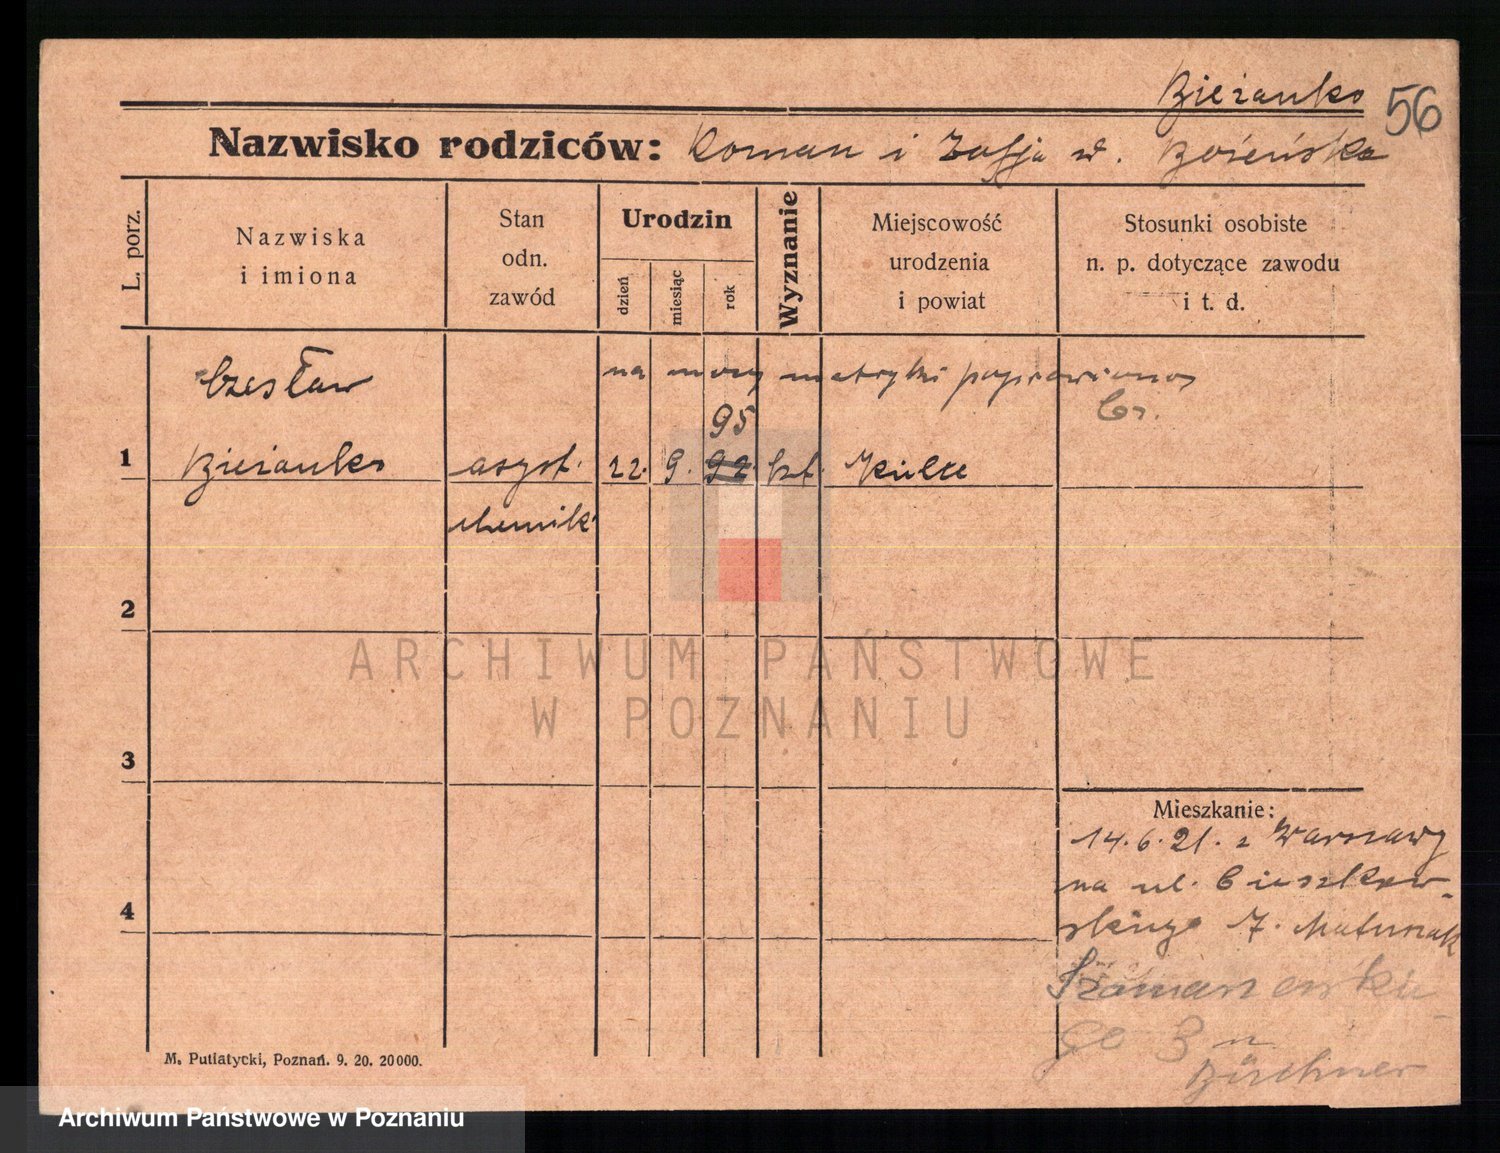 Bieżanko
56
Nazwisko rodziców: Roman i Zofja d. Bożeńska
L. porz.
Nazwiska
i imiona
Stan
odn.
zawód
Urodzin
dzień
miesiąc
rok
Wyznanie
Miejscowość
urodzenia
i powiat
Stosunki osobiste
n. p. dotyczące zawodu
i t. d.
Czesław
na mocy metryki poprawiono
95
1 Bieżanko asyst. 22. 9. 92. kat. Kielce
chemik
2
ARCHIWUM PAŃSTWOWE
W POZNANIU
3
Mieszkanie:
14.6.21. z Warszawy
na ul. Cieszkow-
4
skiego 7. Matuszak
Szamarzewskie-
go 3 n
Büchner
M. Putiatycki, Poznań. 9. 20. 20000.
Archiwum Państwowe w Poznaniu